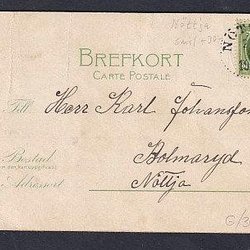 Nöttja
BREFKORT
CARTE POSTALE
Till Herr Karl Johansson
Bostad Bolmaryd
Adressort Nöttja